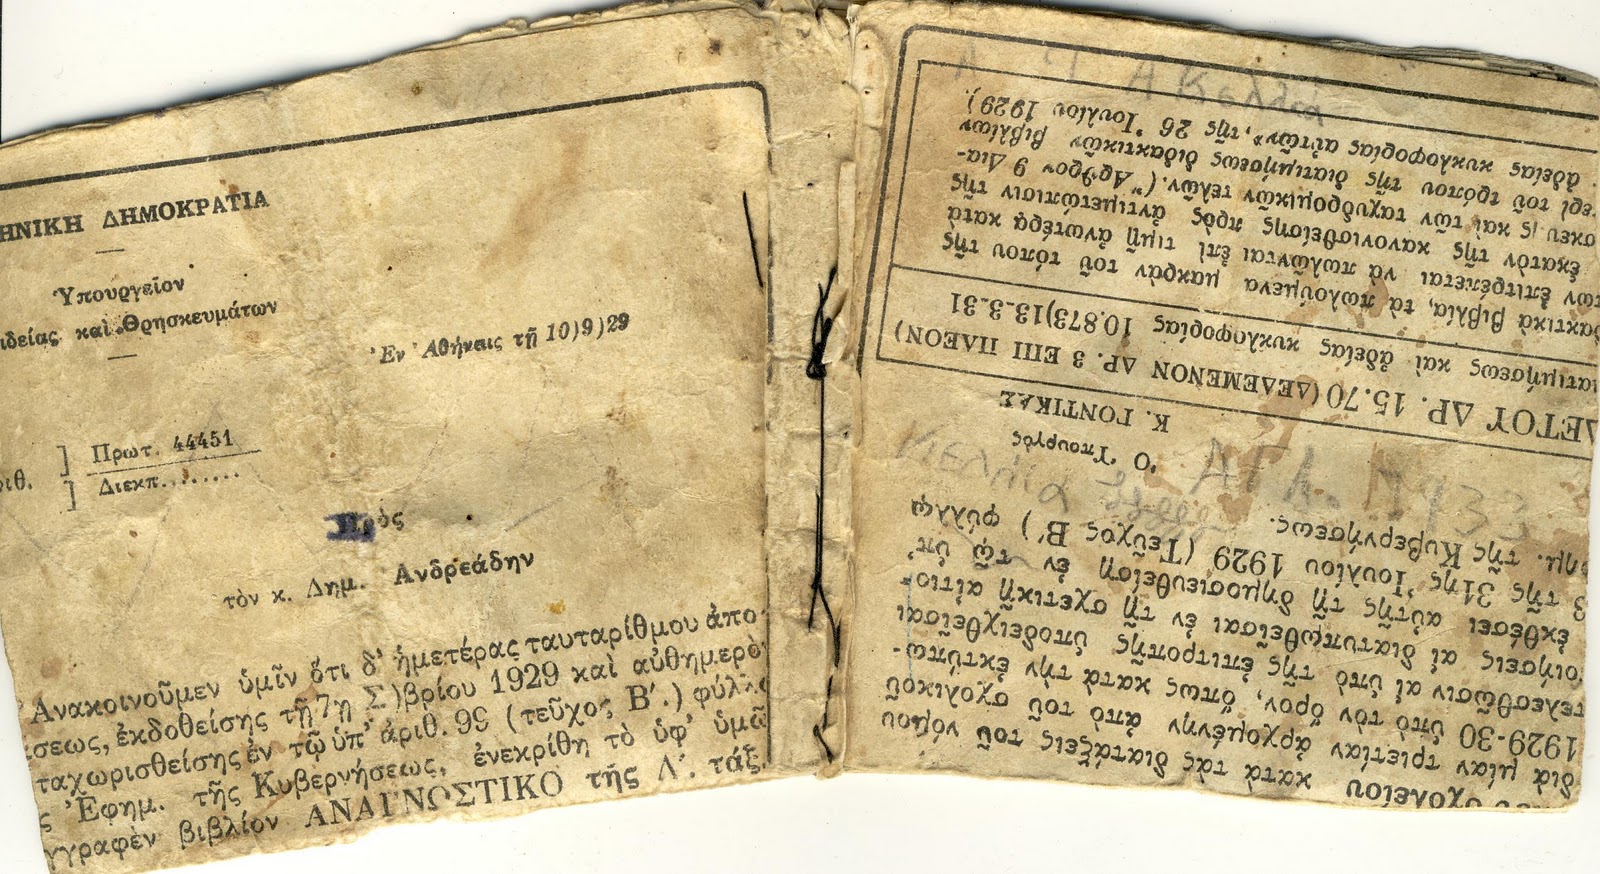 ΗΝΙΚΗ ΔΗΜΟΚΡΑΤΙΑ
Ὑπουργεῖον
ιδείας καὶ Θρησκευμάτων
Ἐν Ἀθήναις τῇ 10)9)29
ιθ. ] Πρωτ. 44451
] Διεκπ.........
Πρὸς
τὸν κ. Δημ. Ἀνδρεάδην
Ἀνακοινοῦμεν ὑμῖν ὅτι δ' ἡμετέρας ταυταρίθμου ἀπο-
σεως, ἐκδοθείσης τῇ 7ῃ Σ)βρίου 1929 καὶ αὐθημερὸ
ταχωρισθείσης ἐν τῷ ὑπ' ἀριθ. 99 (τεῦχος Β'.) φύλλ
ς Ἐφημ. τῆς Κυβερνήσεως, ἐνεκρίθη τὸ ὑφ' ὑμῶ
γγραφὲν βιβλίον ΑΝΑΓΝΩΣΤΙΚΟ τῆς Δ'. τάξ.
σχολείου κατὰ τὰς διατάξεις τοῦ νόμου
διὰ μίαν τριετίαν ἀρχομένην ἀπὸ τοῦ σχολικοῦ
1929-30 ὑπὸ τὸν ὅρον, ὅπως κατὰ τὴν ἐκτύπω-
τελεσθῶσιν αἱ ὑπὸ τῆς ἐπιτροπῆς ὑποδειχθεῖσαι
οιήσεις αἱ διατυπωθεῖσαι ἐν τῇ σχετικῇ αἰτιο-
ἐκθέσει αὐτῆς τῇ δημοσιευθείσῃ ἐν τῷ ὑπ'
3 τῆς 31ης Ἰουλίου 1929 (Τεῦχος Β') φύλλῳ
ημ. τῆς Κυβερνήσεως.
ΑΓΛ. 1933
Ὁ Ὑπουργὸς
Κ. ΓΟΝΤΙΚΑΣ
ΔΕΤΟΥ ΔΡ. 15.70 (ΔΕΔΕΜΕΝΟΝ ΔΡ. 3 ΕΠΙ ΠΛΕΟΝ)
ιατιμήσεως καὶ ἀδείας κυκλοφορίας 10.873)13-3-31
ακτικὰ βιβλία, τὰ πωλούμενα μακρὰν τοῦ τόπου τῆς
των ἐπιτρέπεται νὰ πωλῶνται ἐπὶ τιμῇ ἀνωτέρᾳ κατὰ
ἑκατὸν τῆς κανονισθείσης πρὸς ἀντιμετώπισιν τῆς
σκευῆς καὶ τῶν ταχυδρομικῶν τελῶν. („Ἄρθρον 9 Δια-
περὶ τοῦ τρόπου τῆς διατιμήσεως διδακτικῶν βιβλίων
ἀδείας κυκλοφορίας αὐτῶν”, τῆς 26 Ἰουλίου 1929).